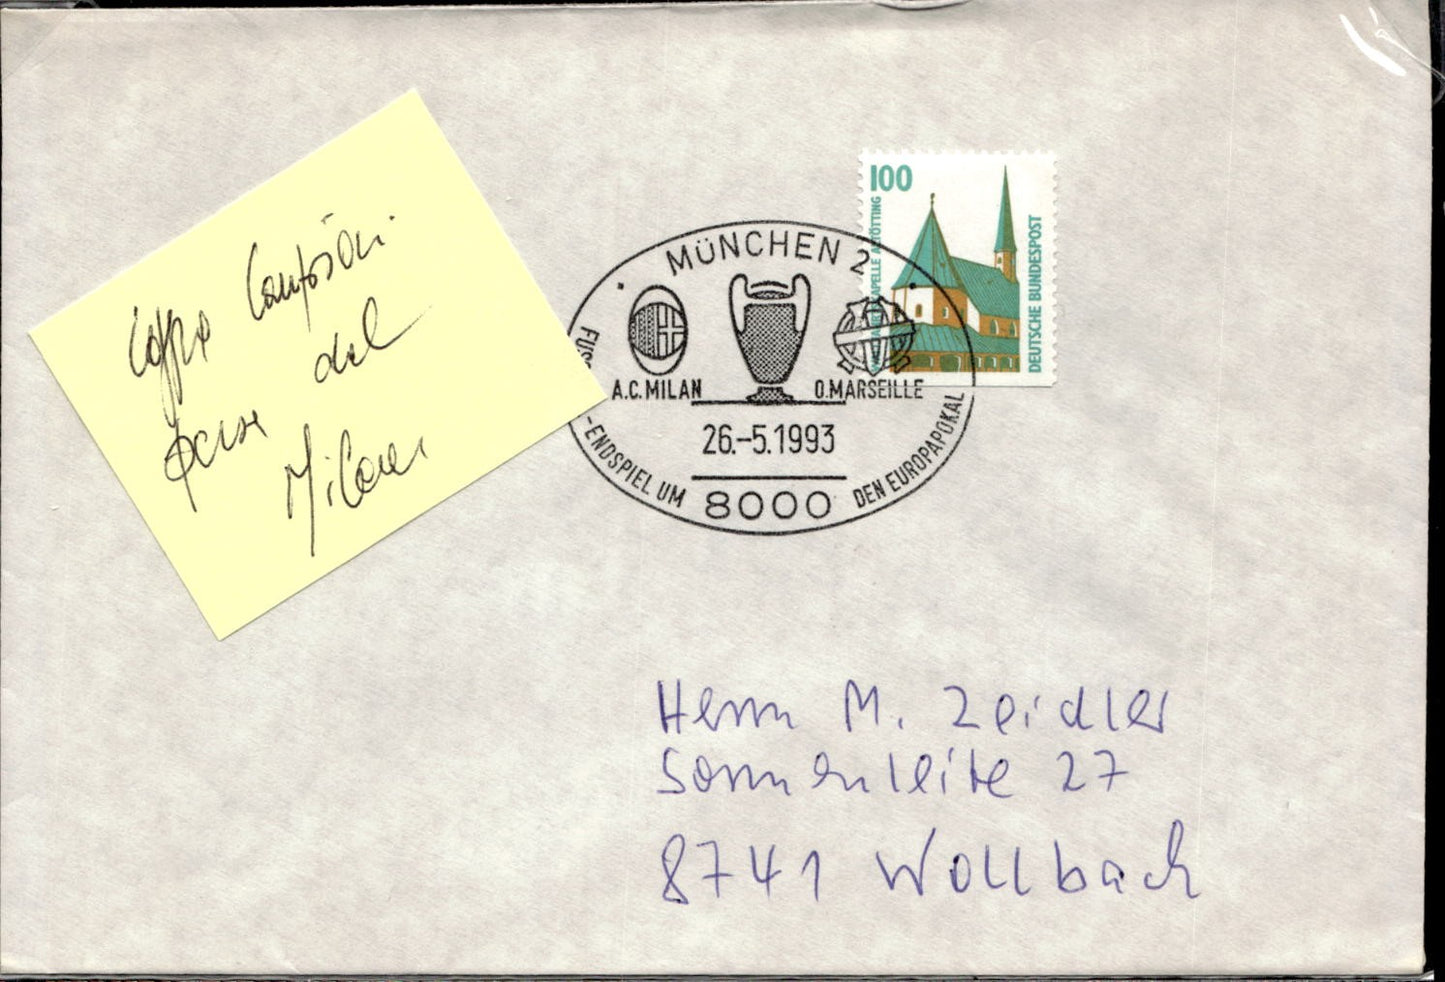 Coppa Campioni
persa dal
Milan
100
WALLFAHRTSKAPELLE ALTÖTTING
DEUTSCHE BUNDESPOST
MÜNCHEN 2
A.C. MILAN
O. MARSEILLE
26.-5.1993
FUS
-ENDSPIEL UM
8000
DEN EUROPAPOKAL
Herrn M. Zeidler
Sonnenleite 27
8741 Wollbach